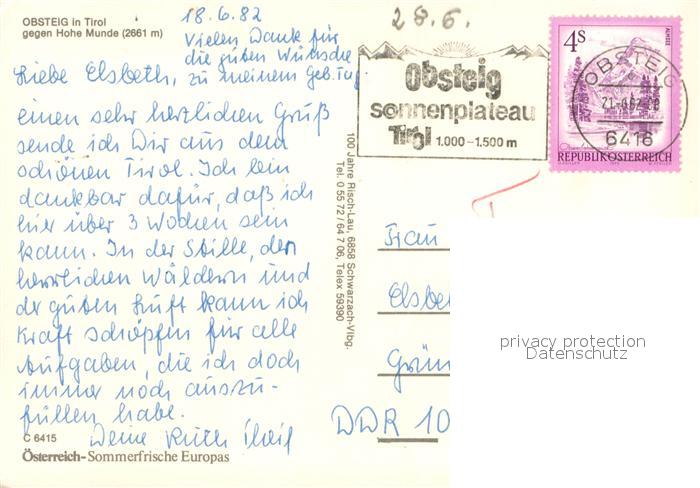 OBSTEIG in Tirol
gegen Hohe Munde (2661 m)
18.6.82
Vielen Dank für
die guten Wünsche
zu meinem Geb.tag.
Liebe Elsbeth,
einen sehr herzlichen Gruß
sende ich Dir aus dem
schönen Tirol. Ich bin
dankbar dafür, daß ich
hier über 3 Wochen sein
kann. In der Stille, den
herrlichen Wäldern und
der guten Luft kann ich
Kraft schöpfen für alle
Aufgaben, die ich doch
immer noch auszu-
füllen habe.
Deine Ruth
C 6415
Österreich-Sommerfrische Europas
100 Jahre Risch-Lau, 6858 Schwarzach-Vlbg.
Tel. 0 55 72 / 64 7 06, Telex 59390
28.6.
Obsteig
sonnenplateau
Tirol 1.000-1.500 m
4S
ALMSEE
OBSTEIG
6416
REPUBLIK ÖSTERREICH
Frau
Elsbe
Grün
DDR 10
privacy protection
Datenschutz